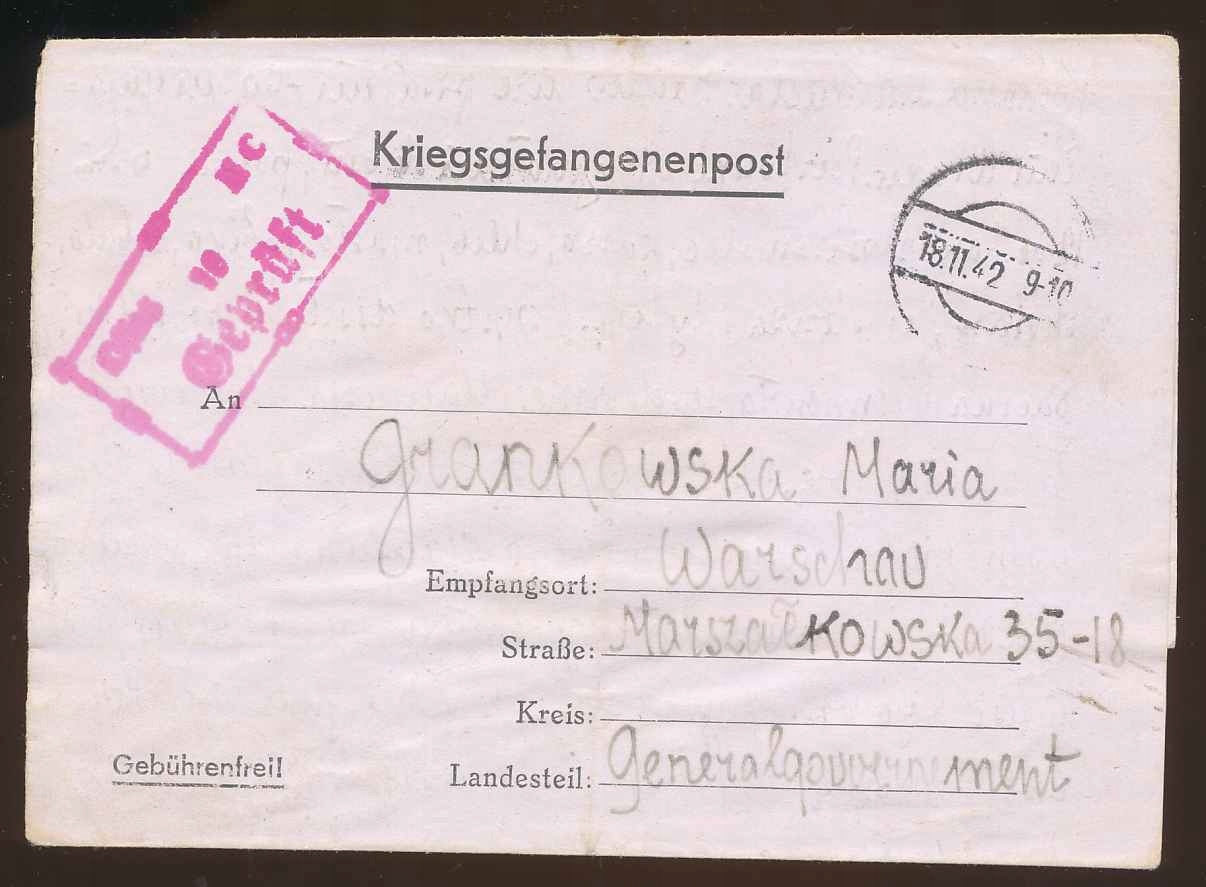 Kriegsgefangenenpost
Oflag 10 II C
Geprüft
18.11.42 9-10
An
Grankowska Maria
Empfangsort: Warschau
Straße: Marszałkowska 35-18
Kreis:
Landesteil: Generalgouvernement
Gebührenfrei!